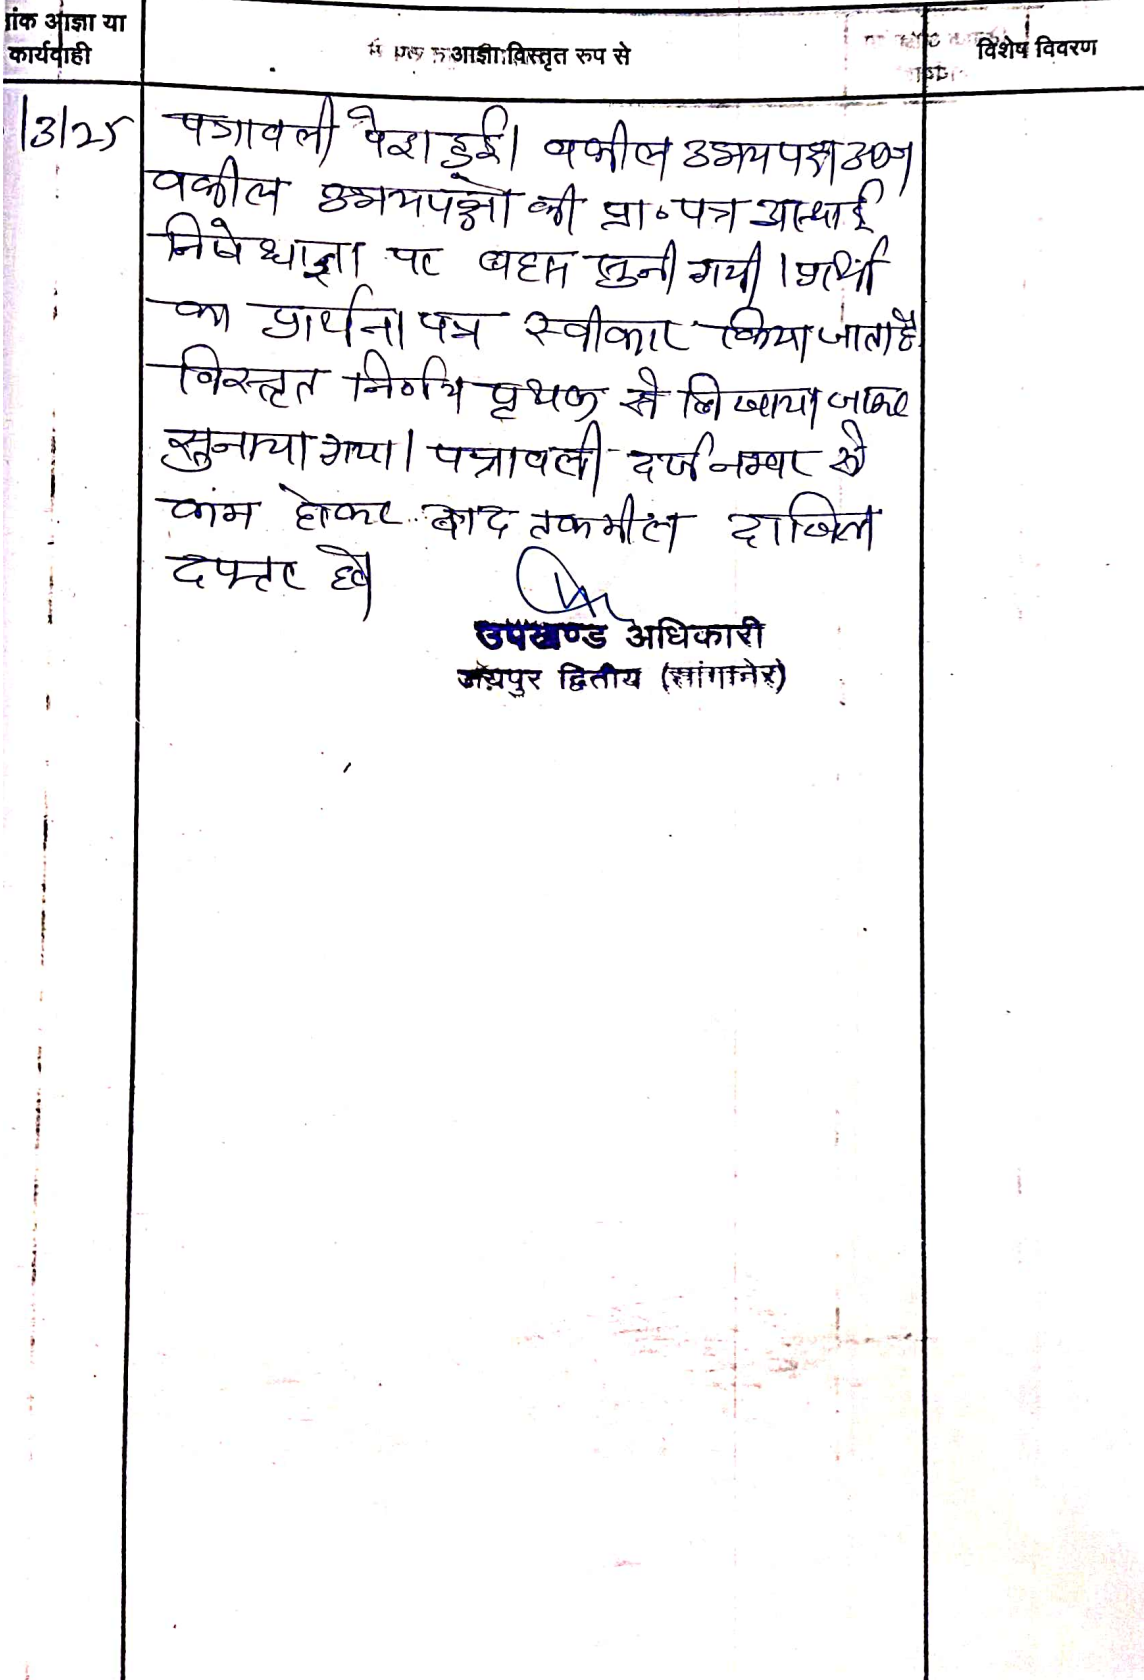 ांक आज्ञा या
कार्यवाही
आज्ञा विस्तृत रुप से
विशेष विवरण
/3/25
पत्रावली पेश हुई। वकील उभयपक्ष उप०
वकील उभयपक्षो की प्रा०पत्र अस्थाई
निषेधाज्ञा पर बहस सुनी गयी। प्रार्थी
का प्रार्थना पत्र स्वीकार किया जाता है
विस्तृत निर्णय पृथक से लिखाया जाकर
सुनाया गया। पत्रावली दर्ज नम्बर से
कम होकर बाद तकमील दाखिल
दफ्तर हो
उपखण्ड अधिकारी
जयपुर द्वितीय (सांगानेर)